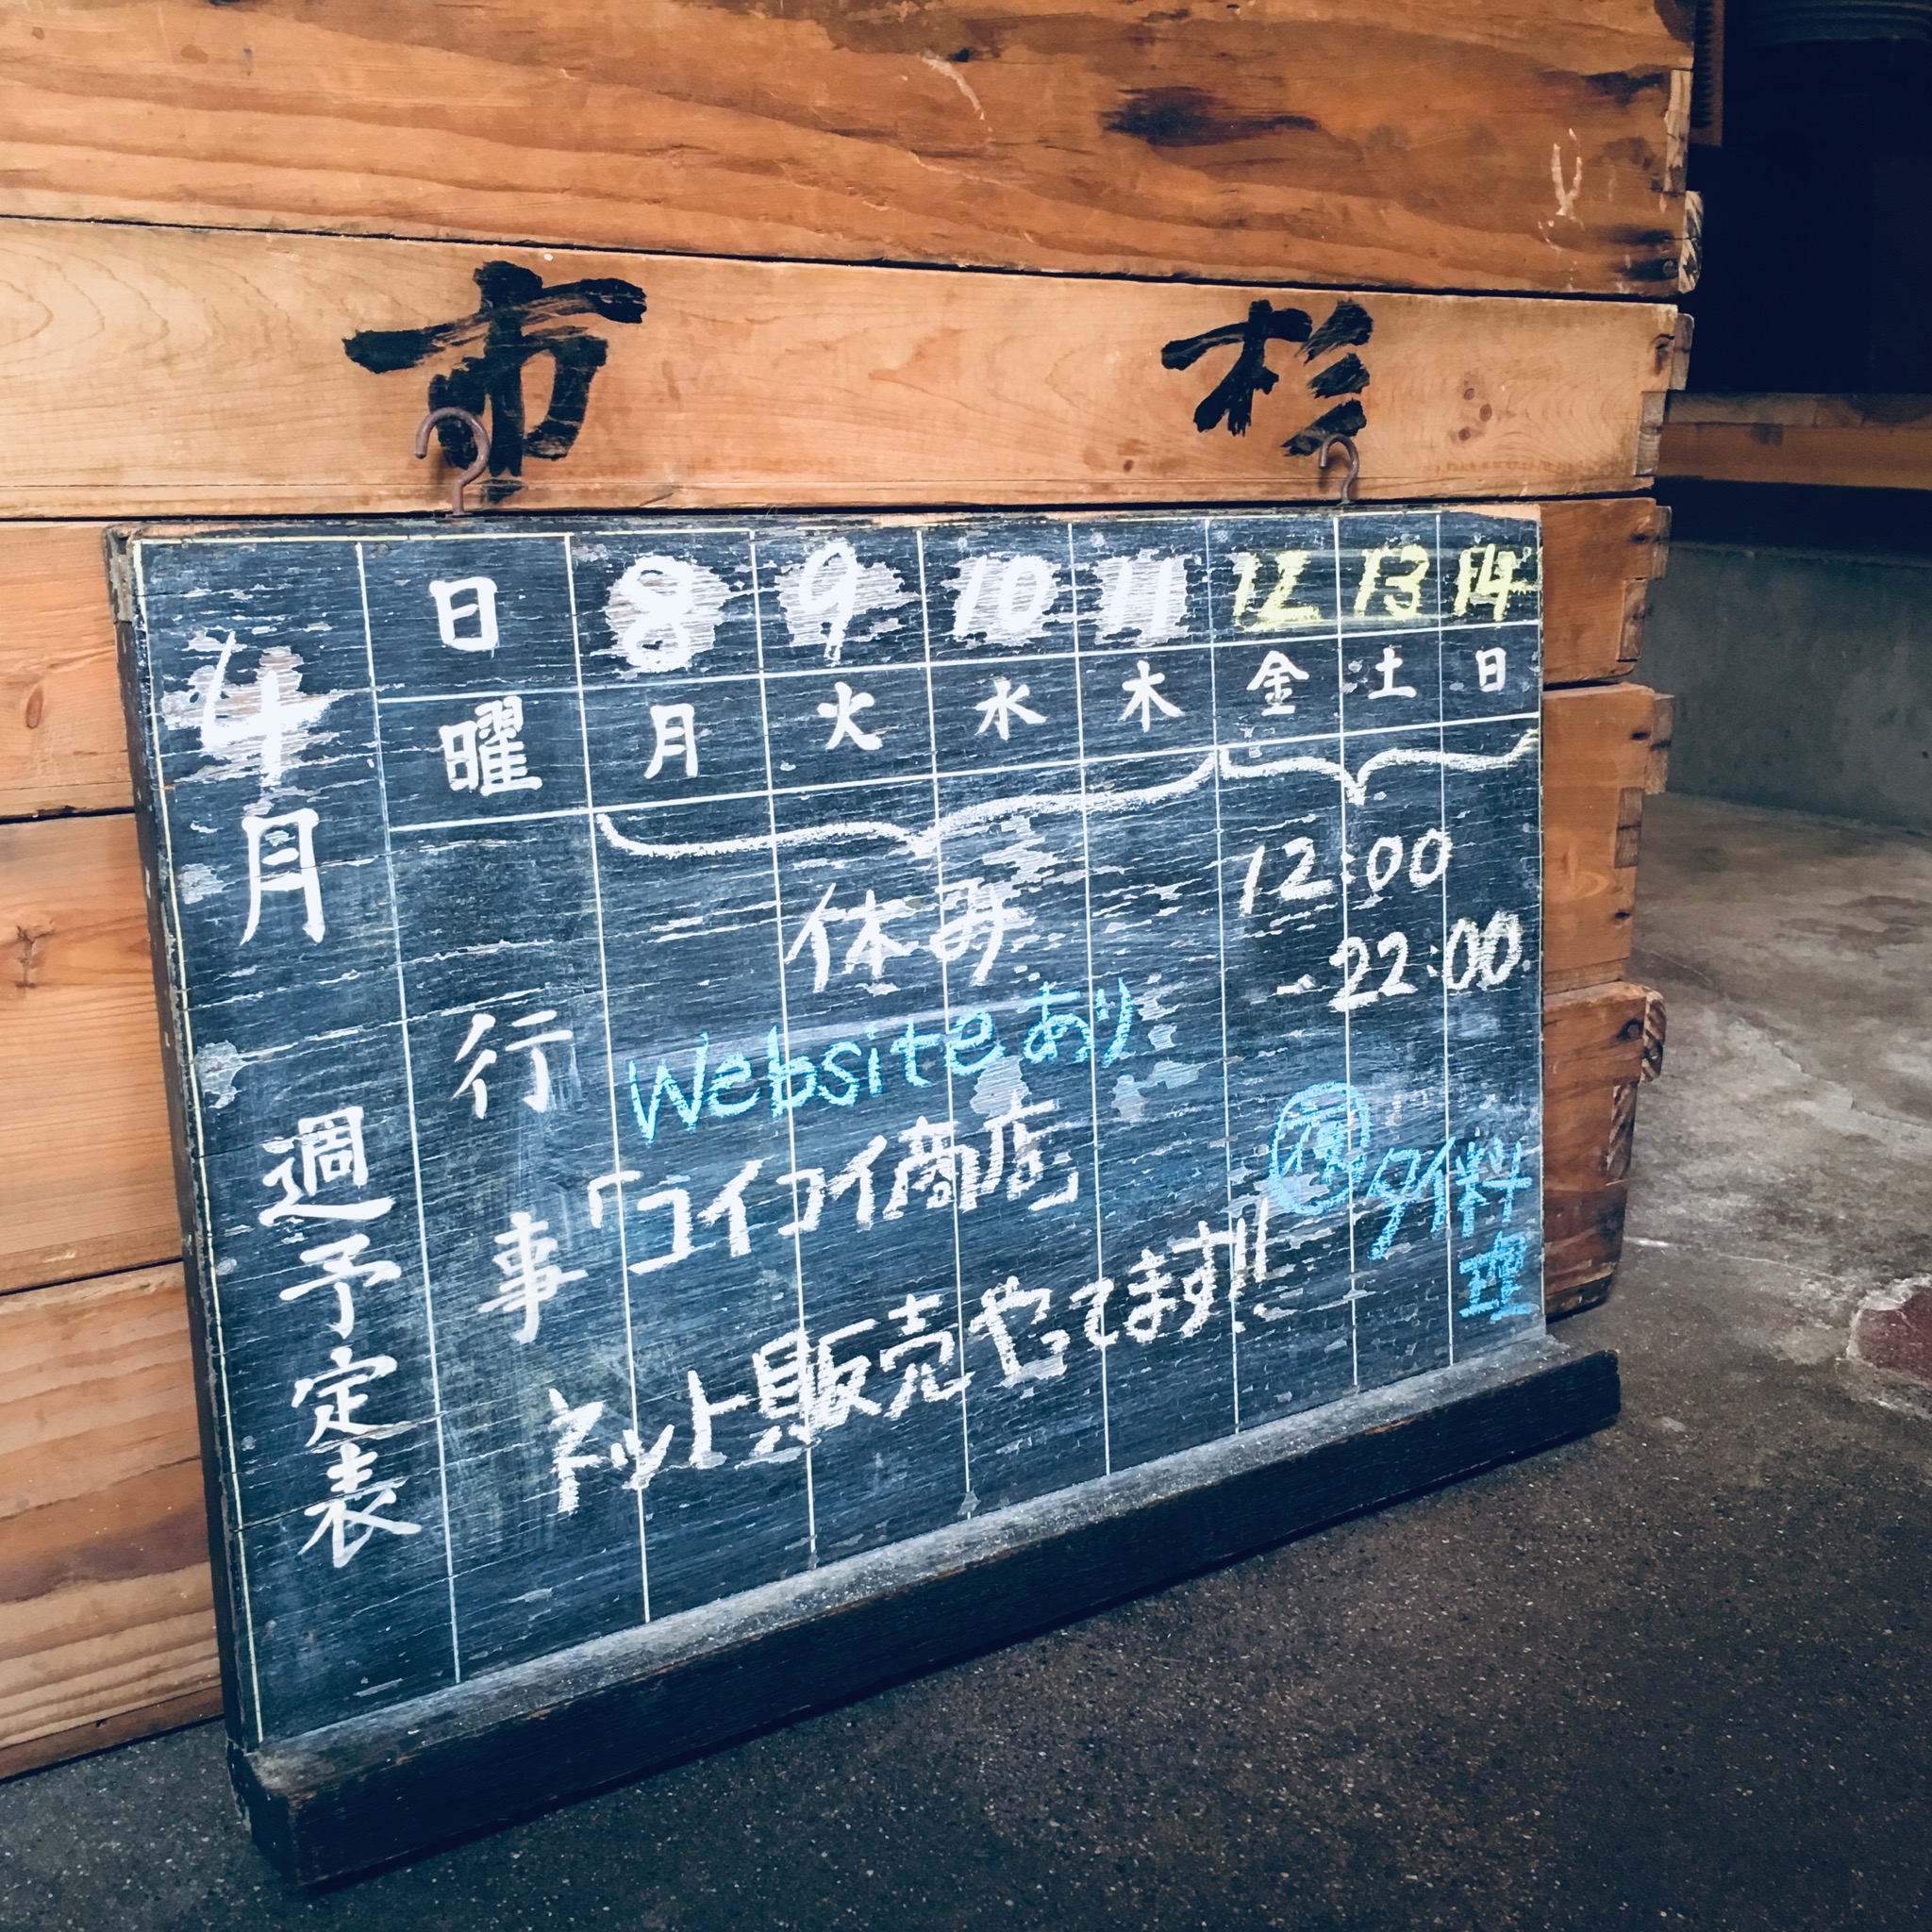 市 杉
4月
週予定表
日 8 9 10 11 12 13 14
曜 月 火 水 木 金 土 日
行事
休み
12:00
-22:00
Websiteあり
「コイコイ商店」
ネット販売やってます!!
夜 タイ料
理